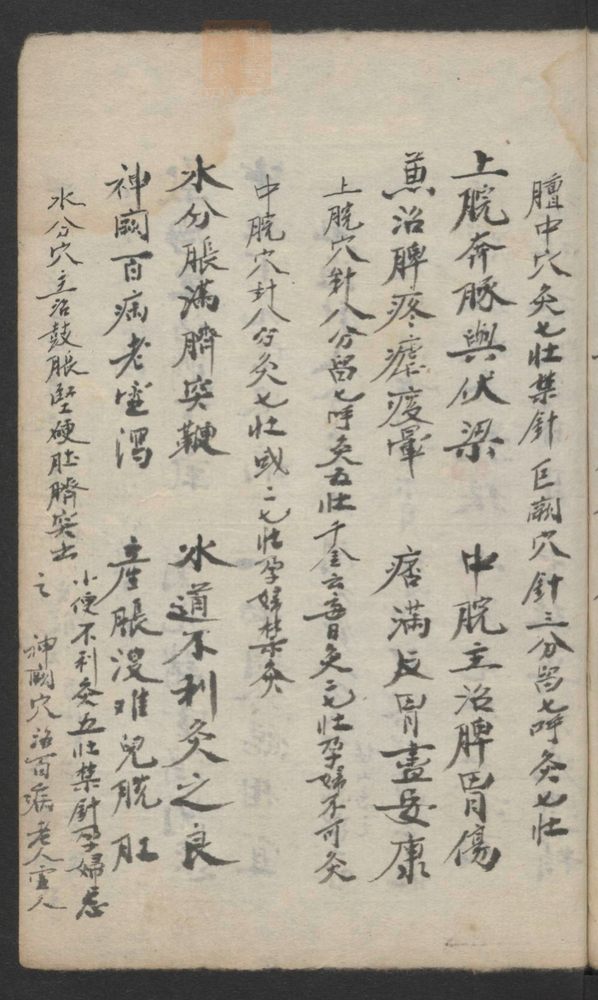 膻中穴灸七壮禁針 巨闕穴針三分留七呼灸七壮
上脘奔豚與伏梁 中脘主治脾胃傷
兼治脾疼瘧痰暈 痞滿反胃盡安康
上脘穴針八分留七呼灸五壮千金云每日灸二七壮孕婦不可灸
中脘穴針八分灸七壮或二七壮孕婦禁灸
水分脹滿臍突鞕 水道不利灸之良
神闕百病老虛瀉 產脹溲难兒脱肛
水分穴主治鼓脹堅硬肚臍突出
小便不利灸五壮禁針孕婦忌
之 神闕穴治百病老人虛人